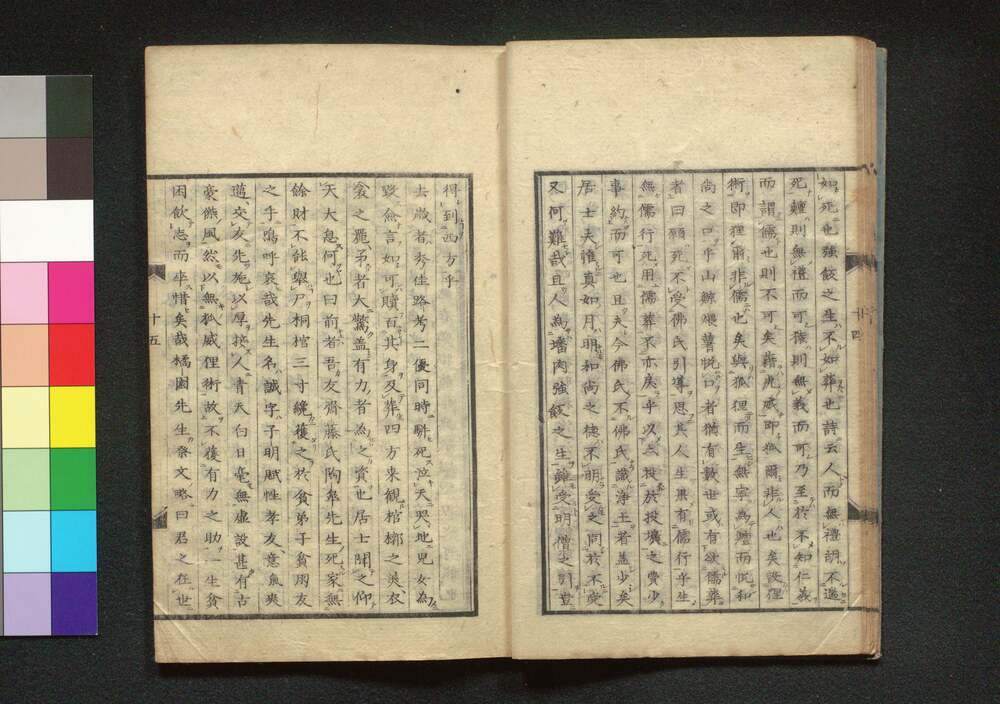 如死也強飯之生不如葬也詩云人而無禮胡不遄
死雖則無禮而可強則無義而可乃至於不知仁義
而謂儒也則不可矣藉虎威即無爾非人也矣汝狸
術即狸爾非儒也矣與狐狸而生無寧為而悦和
尚之口乎山鯨口者猶有數世或有欲儒葬
者曰願死不受佛氏引導思其人生果有儒行乎生
無儒行死用儒葬不亦戾乎以之投放投壙之費少
事約而可也且夫今佛氏不佛氏識淨土者蓋少矣
居士夫惟真如月明和尚之德不明受之同於不受
又何難哉且人為墦肉強飯之生雖受明僧之引豈
十四
得到西方乎
去歲者秀佳路考二優同時駢死泣天哭地兒女為
毀僉言如可贖百其身及葬四方來観棺槨之美衣
衾之麗弟者大驚蓋有力者為之資也居士聞之仰
天大息何也曰前者吾友齋藤氏陶皐先生死家無
餘財不能舉尸桐棺三寸纔葬之於貧弟子貧朋友
之手嗚呼哀哉先生名誠字子明賦性孝友意氣爽
邁交友先施以厚接人青天白日毫無虚設甚有古
豪傑風然以無狐威狸術故不獲有力之助一生貧
困飲志而卒惜矣哉橘園先生祭文略曰君之在世
十五